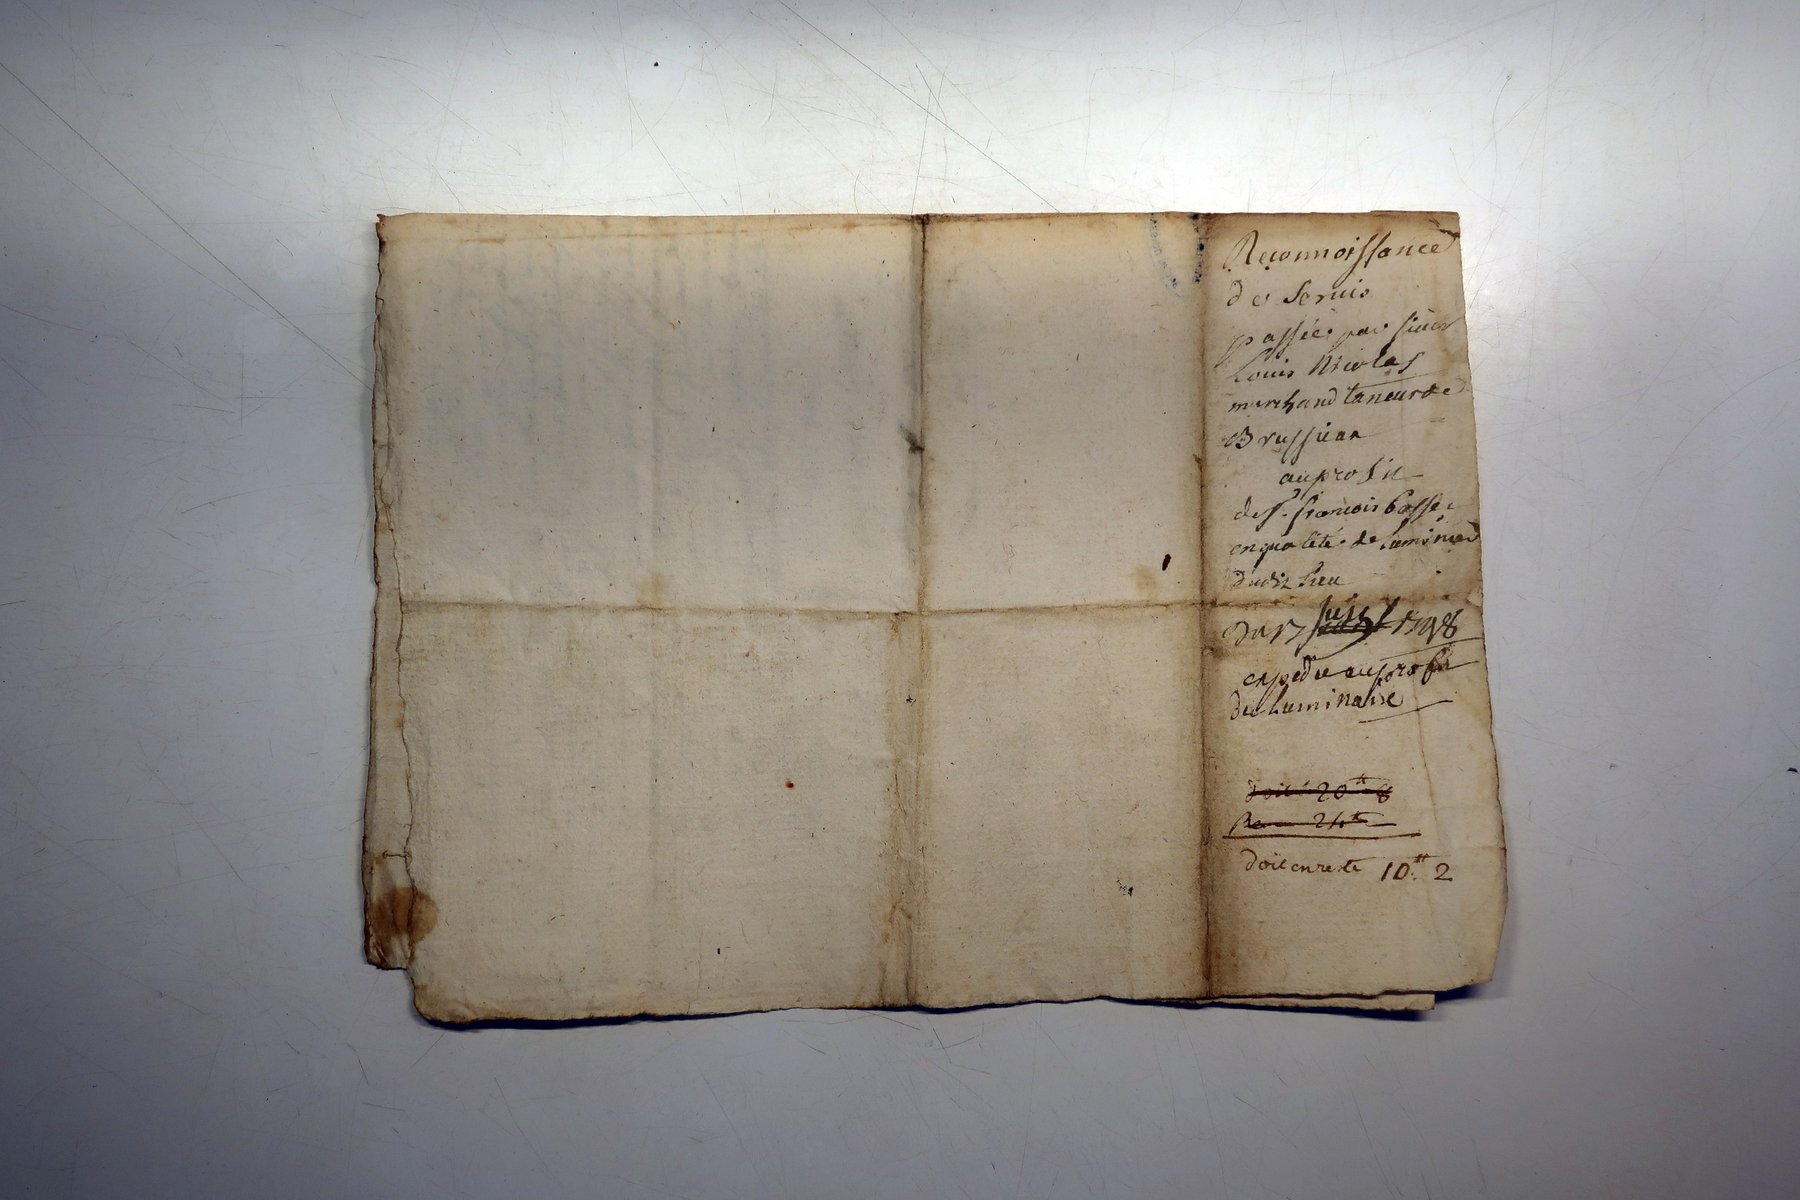 Reconnoissance
de servis
passée par sieur
Louis Nicolas
marchand taneur de
Brussieu
au profit
de Sr. francois basset
en qualité de luminier
dudit lieu
Du 17 1798
expedie au profit
du Luminaire
doit 20tt 8
Re 24tt
doit en reste 10tt 2